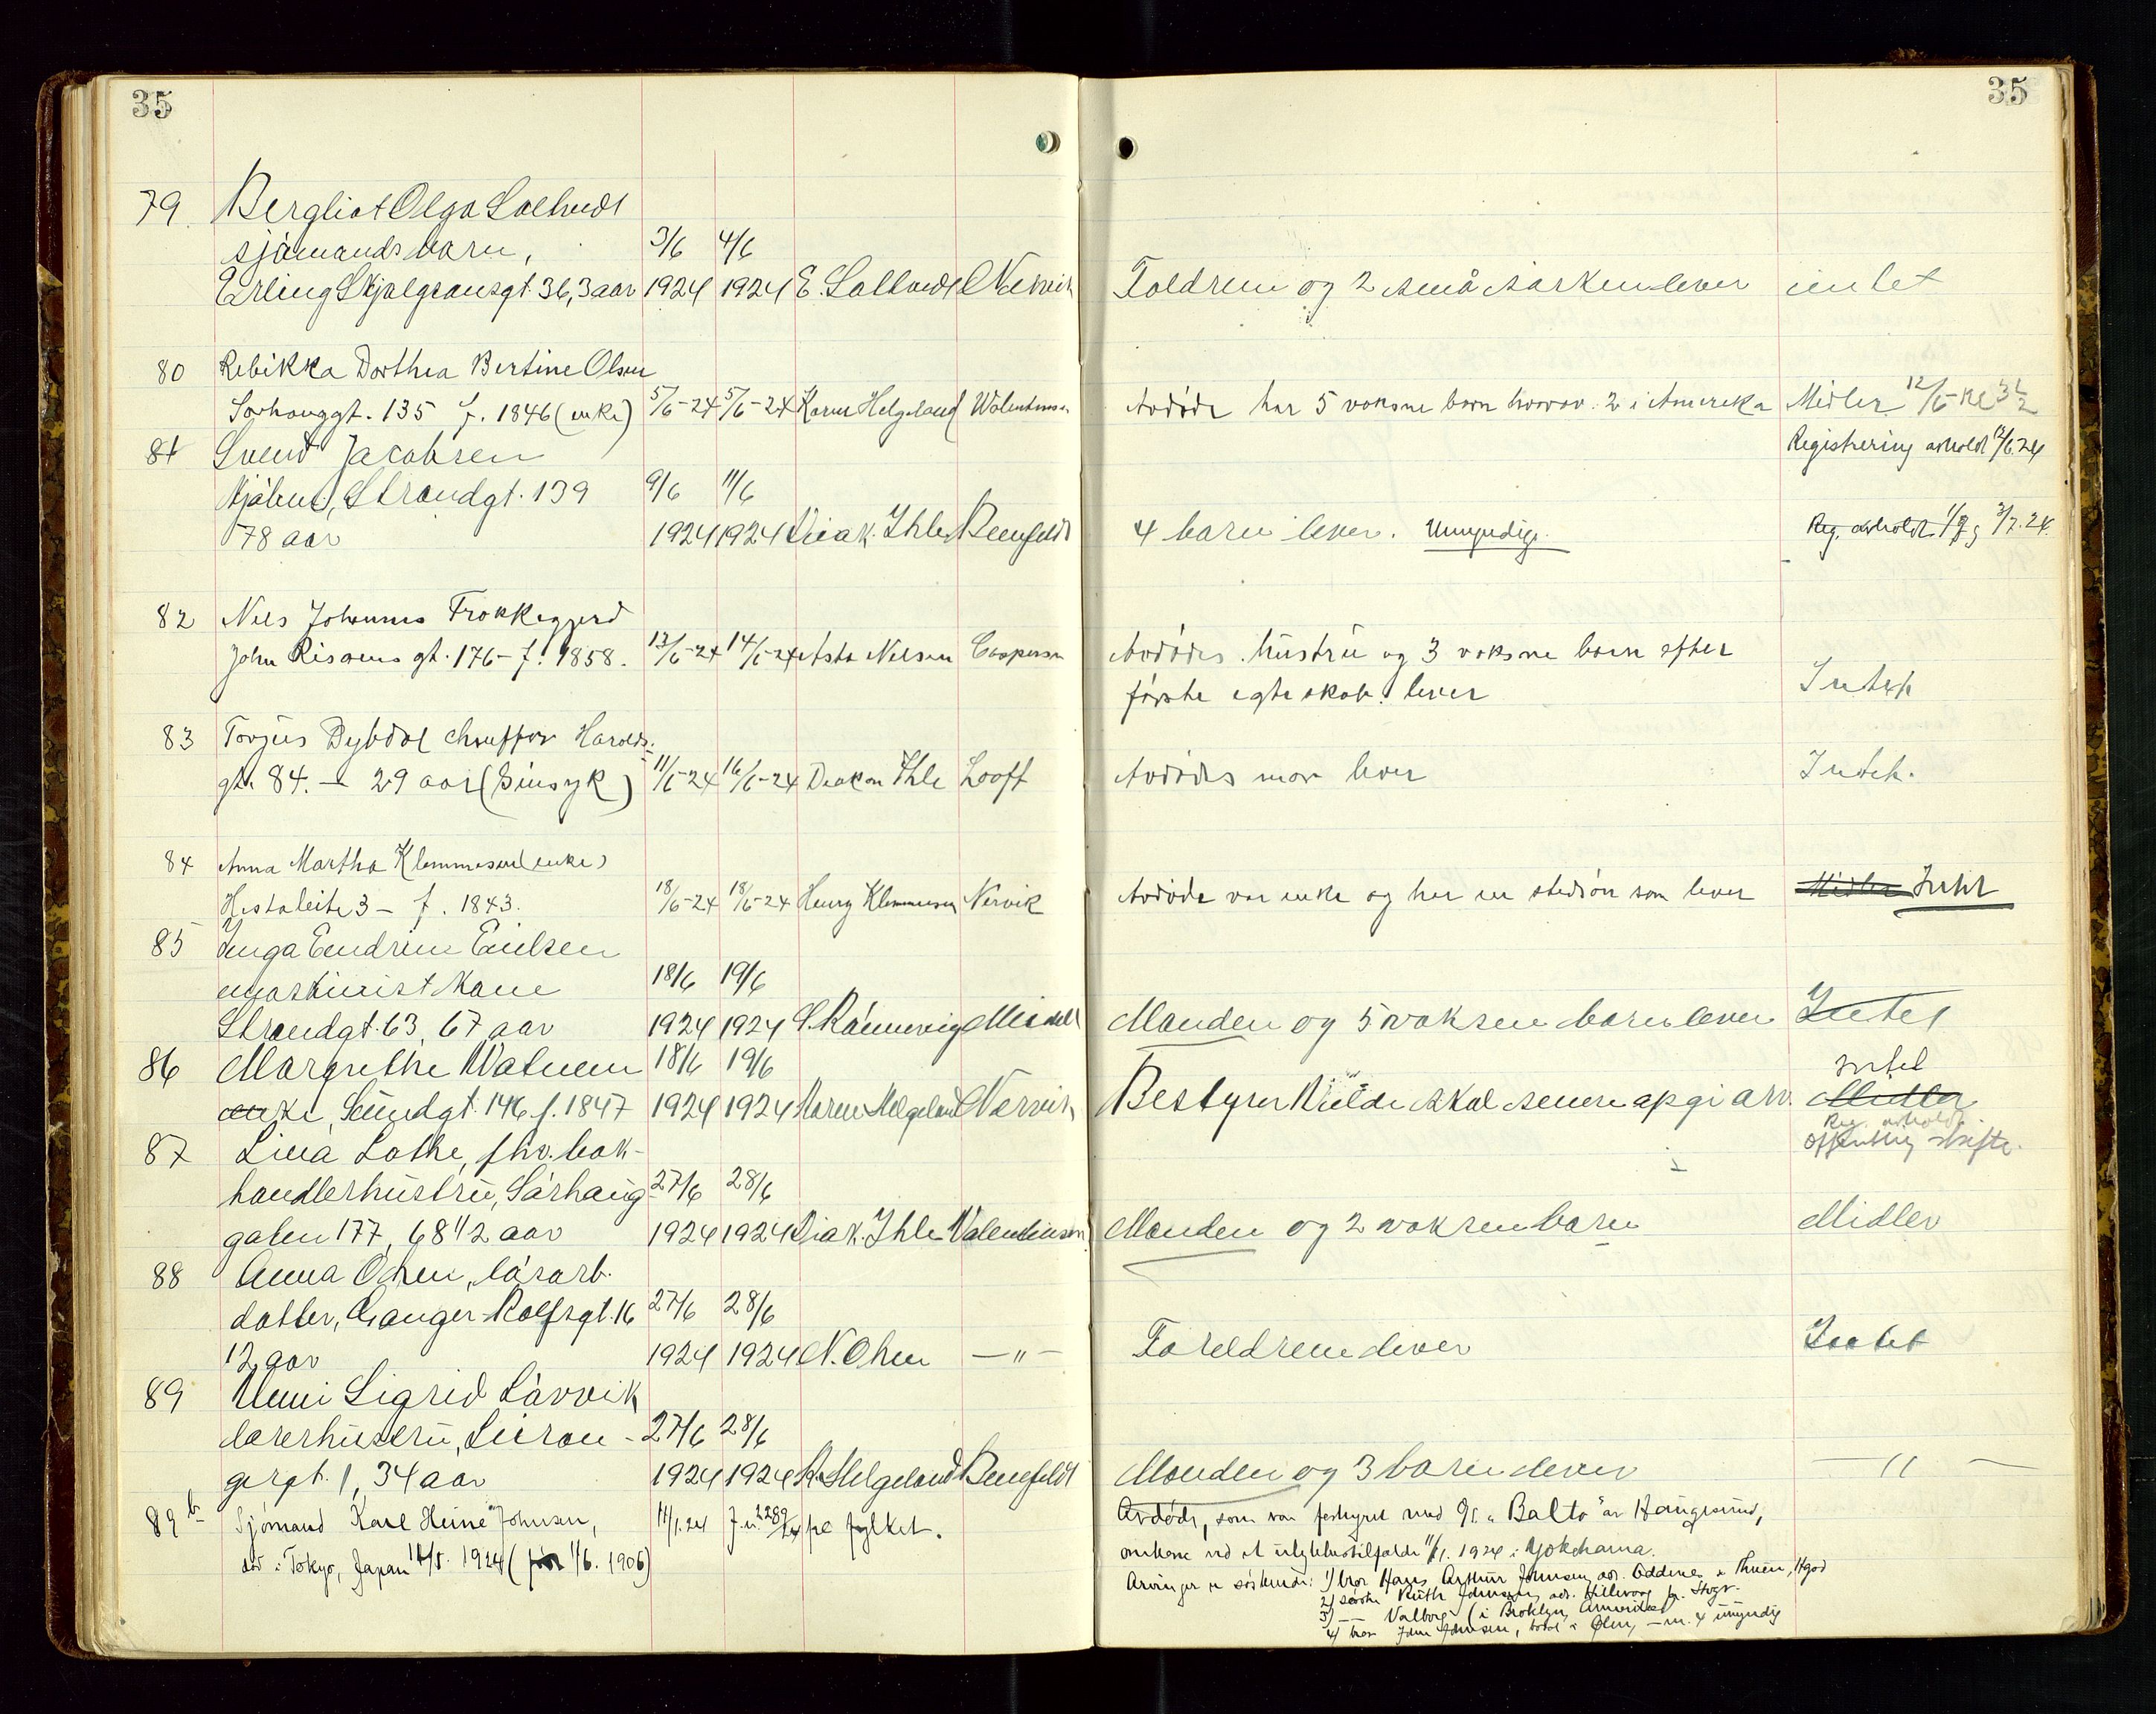 35
35
79. Bergliot Olga
sjømandsbarn, 3/6 4/6
Erling Skjalgsonsgt. 36, 3 aar 1924 1924 E. Nervik og 2 små søsken lever intet
80 Rebikka Dorthea Bertine Olsen
Sørhauggt. 135 f. 1846 (enke) 5/6-24 5/6-24 Karen Helgeland Avdøde har 5 voksne barn hvorav 2 i Amerika Midler 12/6 - kl 3 1/2
81 Svend Jacobsen Registrering avholdt 12/6.24
Strandgt. 139 9/6 11/6
78 aar 1924 1924 Diak. Ihle Benefeldt 4 barn lever. Umyndige. Reg. avholdt 3/7.24.
82 Nels Johannes
John gt. 176 - f. 1858. 13/6-24 14/6-24 Asta Nilsen Caspersen Avdødes hustru og 3 voksne barn efter
første egteskab lever Intet
83 Torjus Dybdal chauffør Harolds-
gt. 84. - 29 aar (Sinsyk) 11/6-24 16/6-24 Deakon Ihle Looft Avdødes mor lever Intet.
84 Anna Martha Klemmesen (enke)
3 - f. 1843. 18/6-24 18/6-24 Henry Klemmesen Nervik Avdøde var enke og har en stedsøn som lever Midler Intet
85 Inga
maskinist kone 18/6 19/6
Strandgt. 63, 67 aar 1924 1924 Manden og 5 voksne barn lever Intet
86 Margrethe Watnem 18/6 19/6 Intet
enke, Sundgt. 146 f. 1847 1924 1924 Karen Helgeland Nervik Bestyrer skal senere opgi arv. Midler
Reg. avholdt
offentlig skifte.
87 Lina Lothe, fhv. bok-
handlerhustru, Sørhaug 27/6 28/6
gaten 177, 68 1/2 aar 1924 1924 Diak. Ihle Valentinsen Manden og 2 voksne barn Midler
88 Anna løsarb.
datter, Ganger-Rolfsgt. 16 27/6 28/6
12 aar 1924 1924 N. — " — Foreldrene lever Intet
89 Sigrid Lårvik
lærerhustru, 27/6 28/6
gt. 1, 34 aar 1924 1924 K. Helgeland Benefeldt Manden og 3 barn lever — " —
89 b Sjømand Karl Heine Johnsen, 11/1.24 J.n. 2289/24 fra fylket. Avdøde, som var forhyret med "Balto" av Haugesund,
død i Tokyo, Japan 1924 (født 1/6. 1906) omkom ved et ulykkestilfælde 11/1. 1924 i Yokohama.
Arvinger er søskende: 1) bror Hans Arthur Johnsen, adr.
2) søster Ruth Johnsen, adr.
3) — Valborg (i Broklyn, Amerika)
4) bror Johnsen, Ølen, umyndig